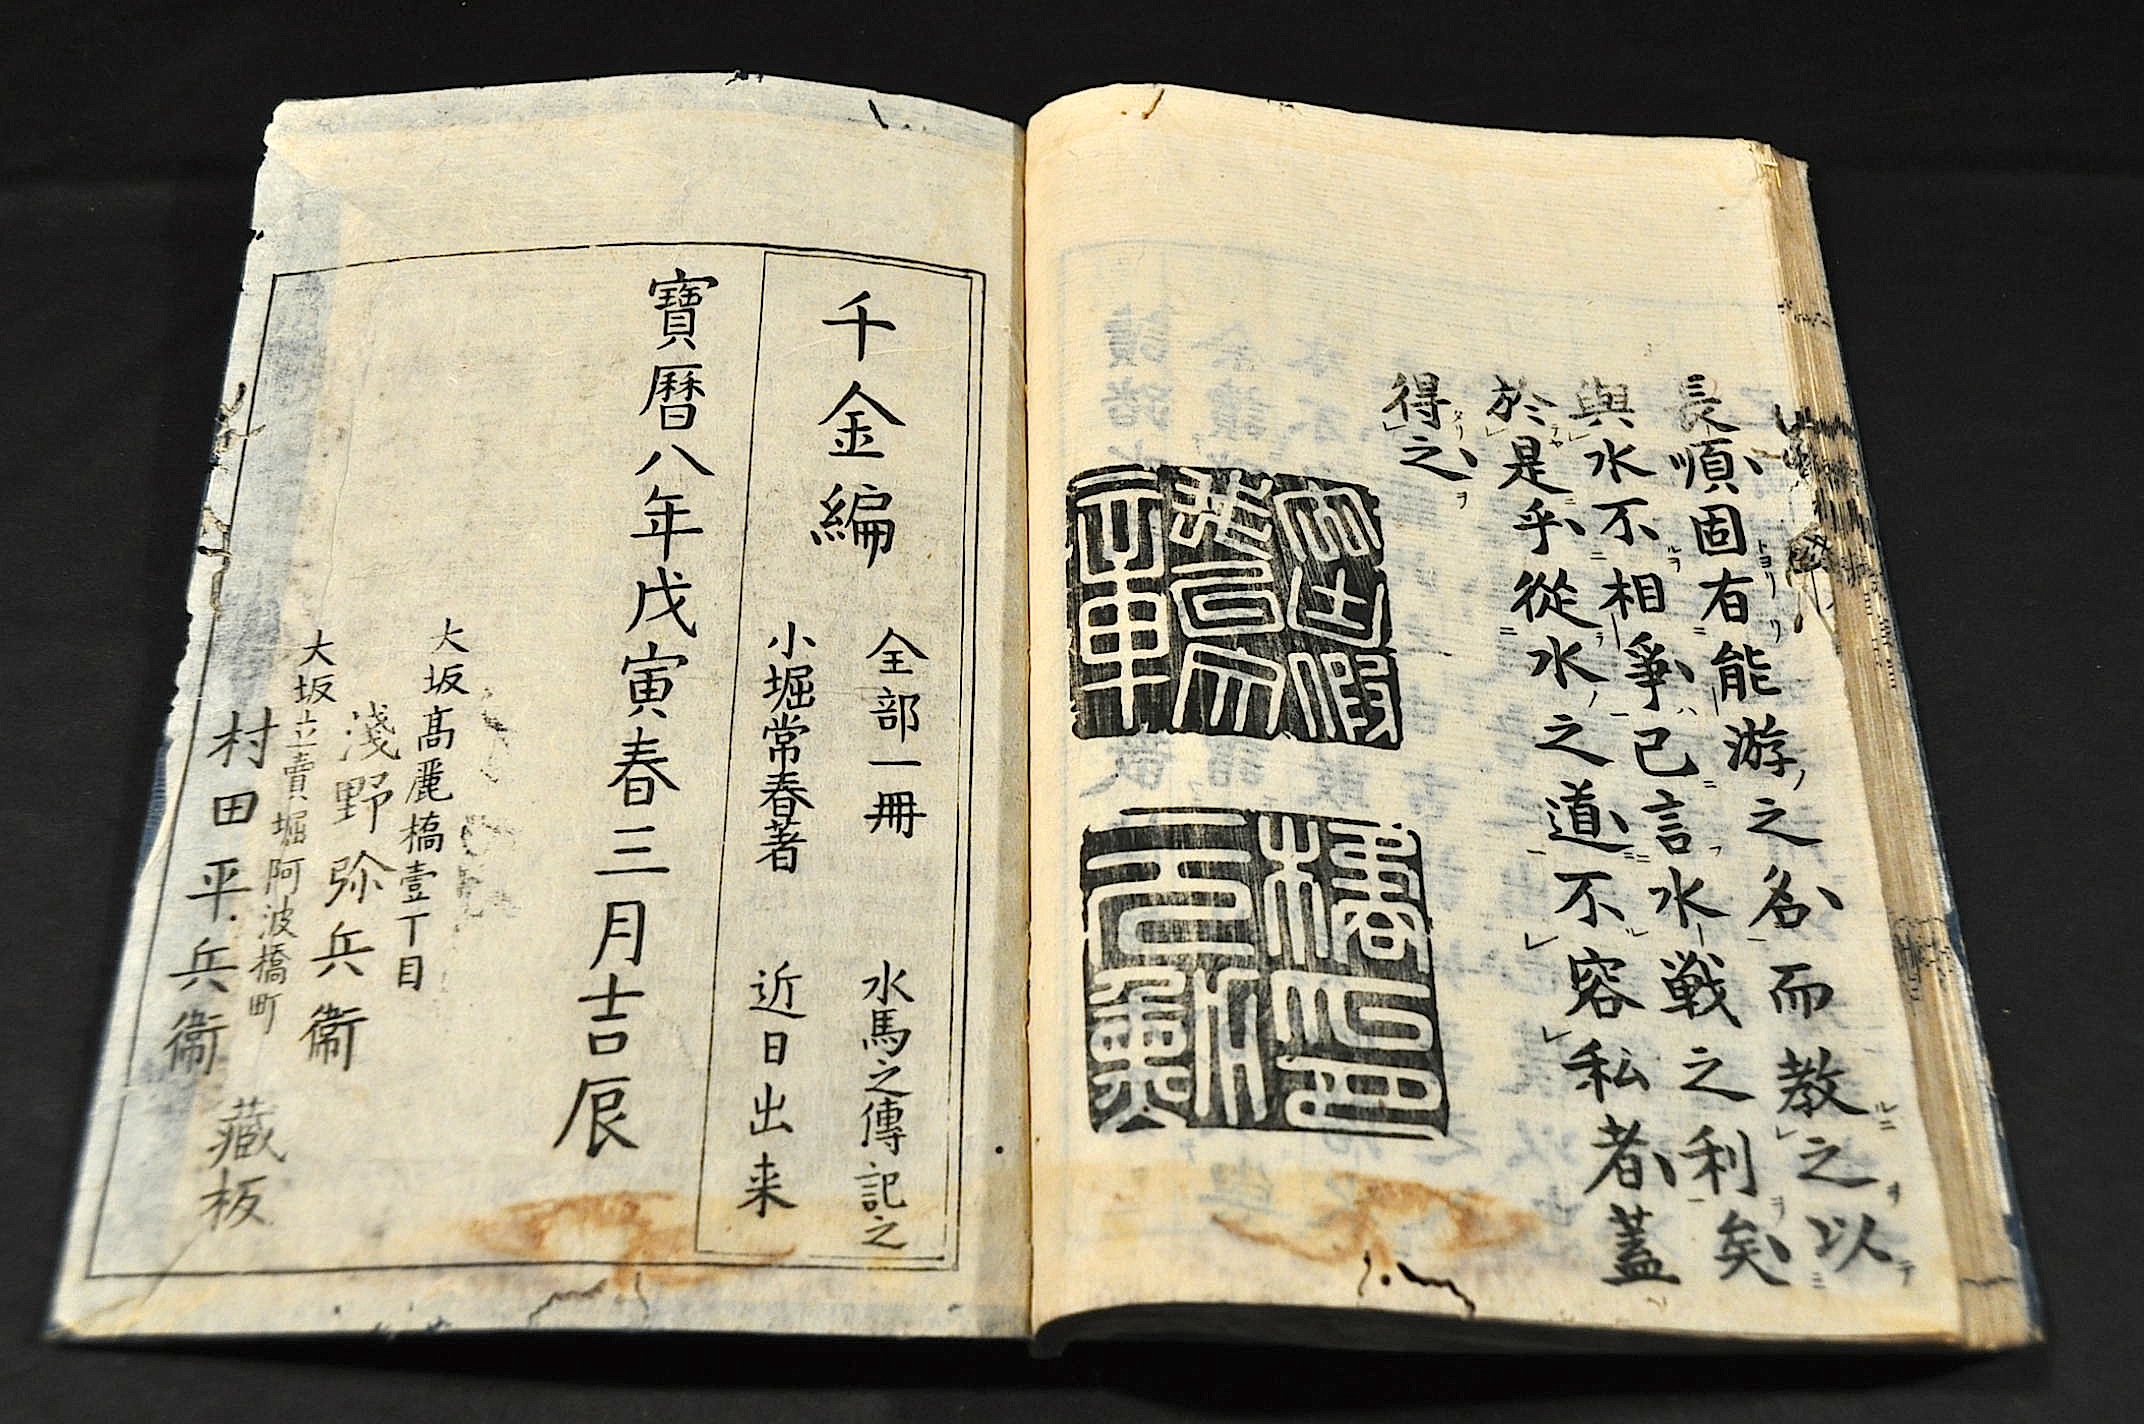 長順固有能游之名而教之以
與水不相爭已言水戦之利矣
於是乎從水之道不容私者蓋
得之
千金編
全部一冊 水馬之傳記之
小堀常春著 近日出来
寶暦八年戊寅春三月吉辰
大坂高麗橋壹丁目
淺野弥兵衞
大坂立賣堀阿波橋町
村田平兵衞
藏板